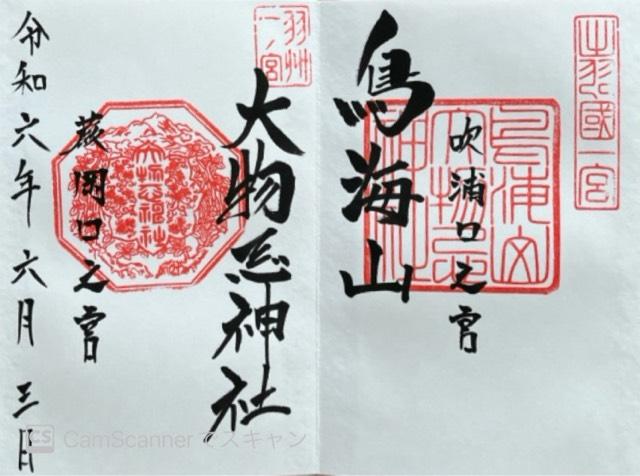 出羽國一宮
鳥海山
吹浦口之宮
羽州
一ノ宮
大物忌神社
大物忌神社
蕨岡口之宮
令和六年六月三日
CS CamScannerでスキャン